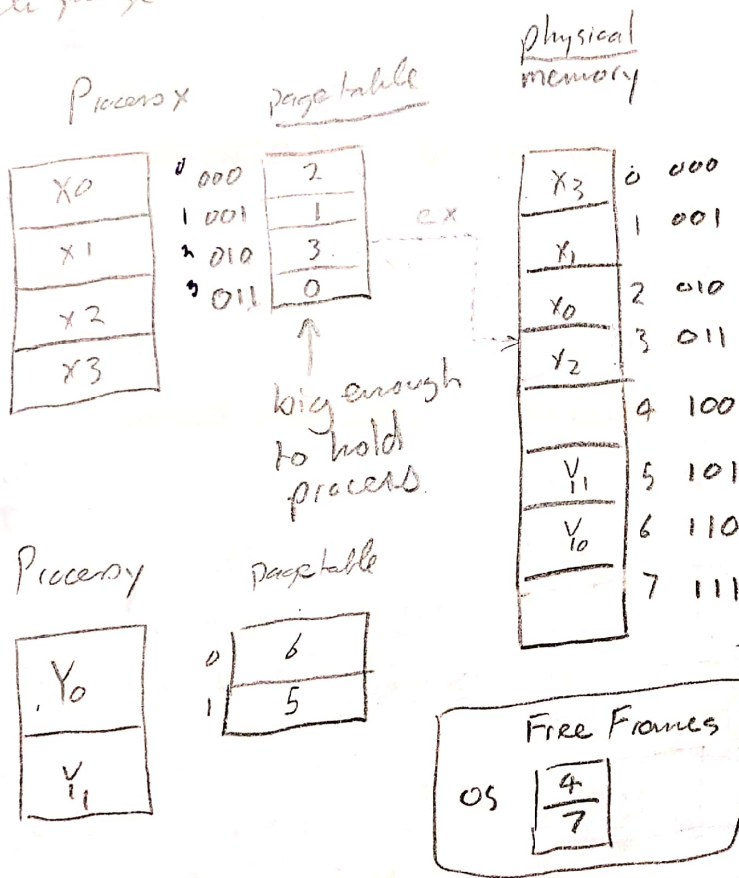 physical
memory
Process X
page table
X0
X1
X2
X3
0 000
1 001
2 010
3 011
2
1
3
0
ex
big enough
to hold
process
X3
X1
X0
X2
Y1
Y0
0 000
1 001
2 010
3 011
4 100
5 101
6 110
7 111
Process y
page table
Y0
Y1
0
1
6
5
Free Frames
OS
4
7